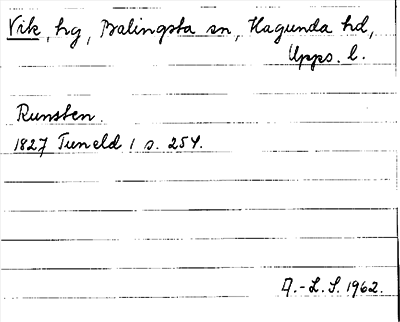 Vik, hg, Balingsta sn, Hagunda hd,
Upps. l.
Runsten.
1827 Tuneld 1 s. 254.
A.-L. S. 1962.